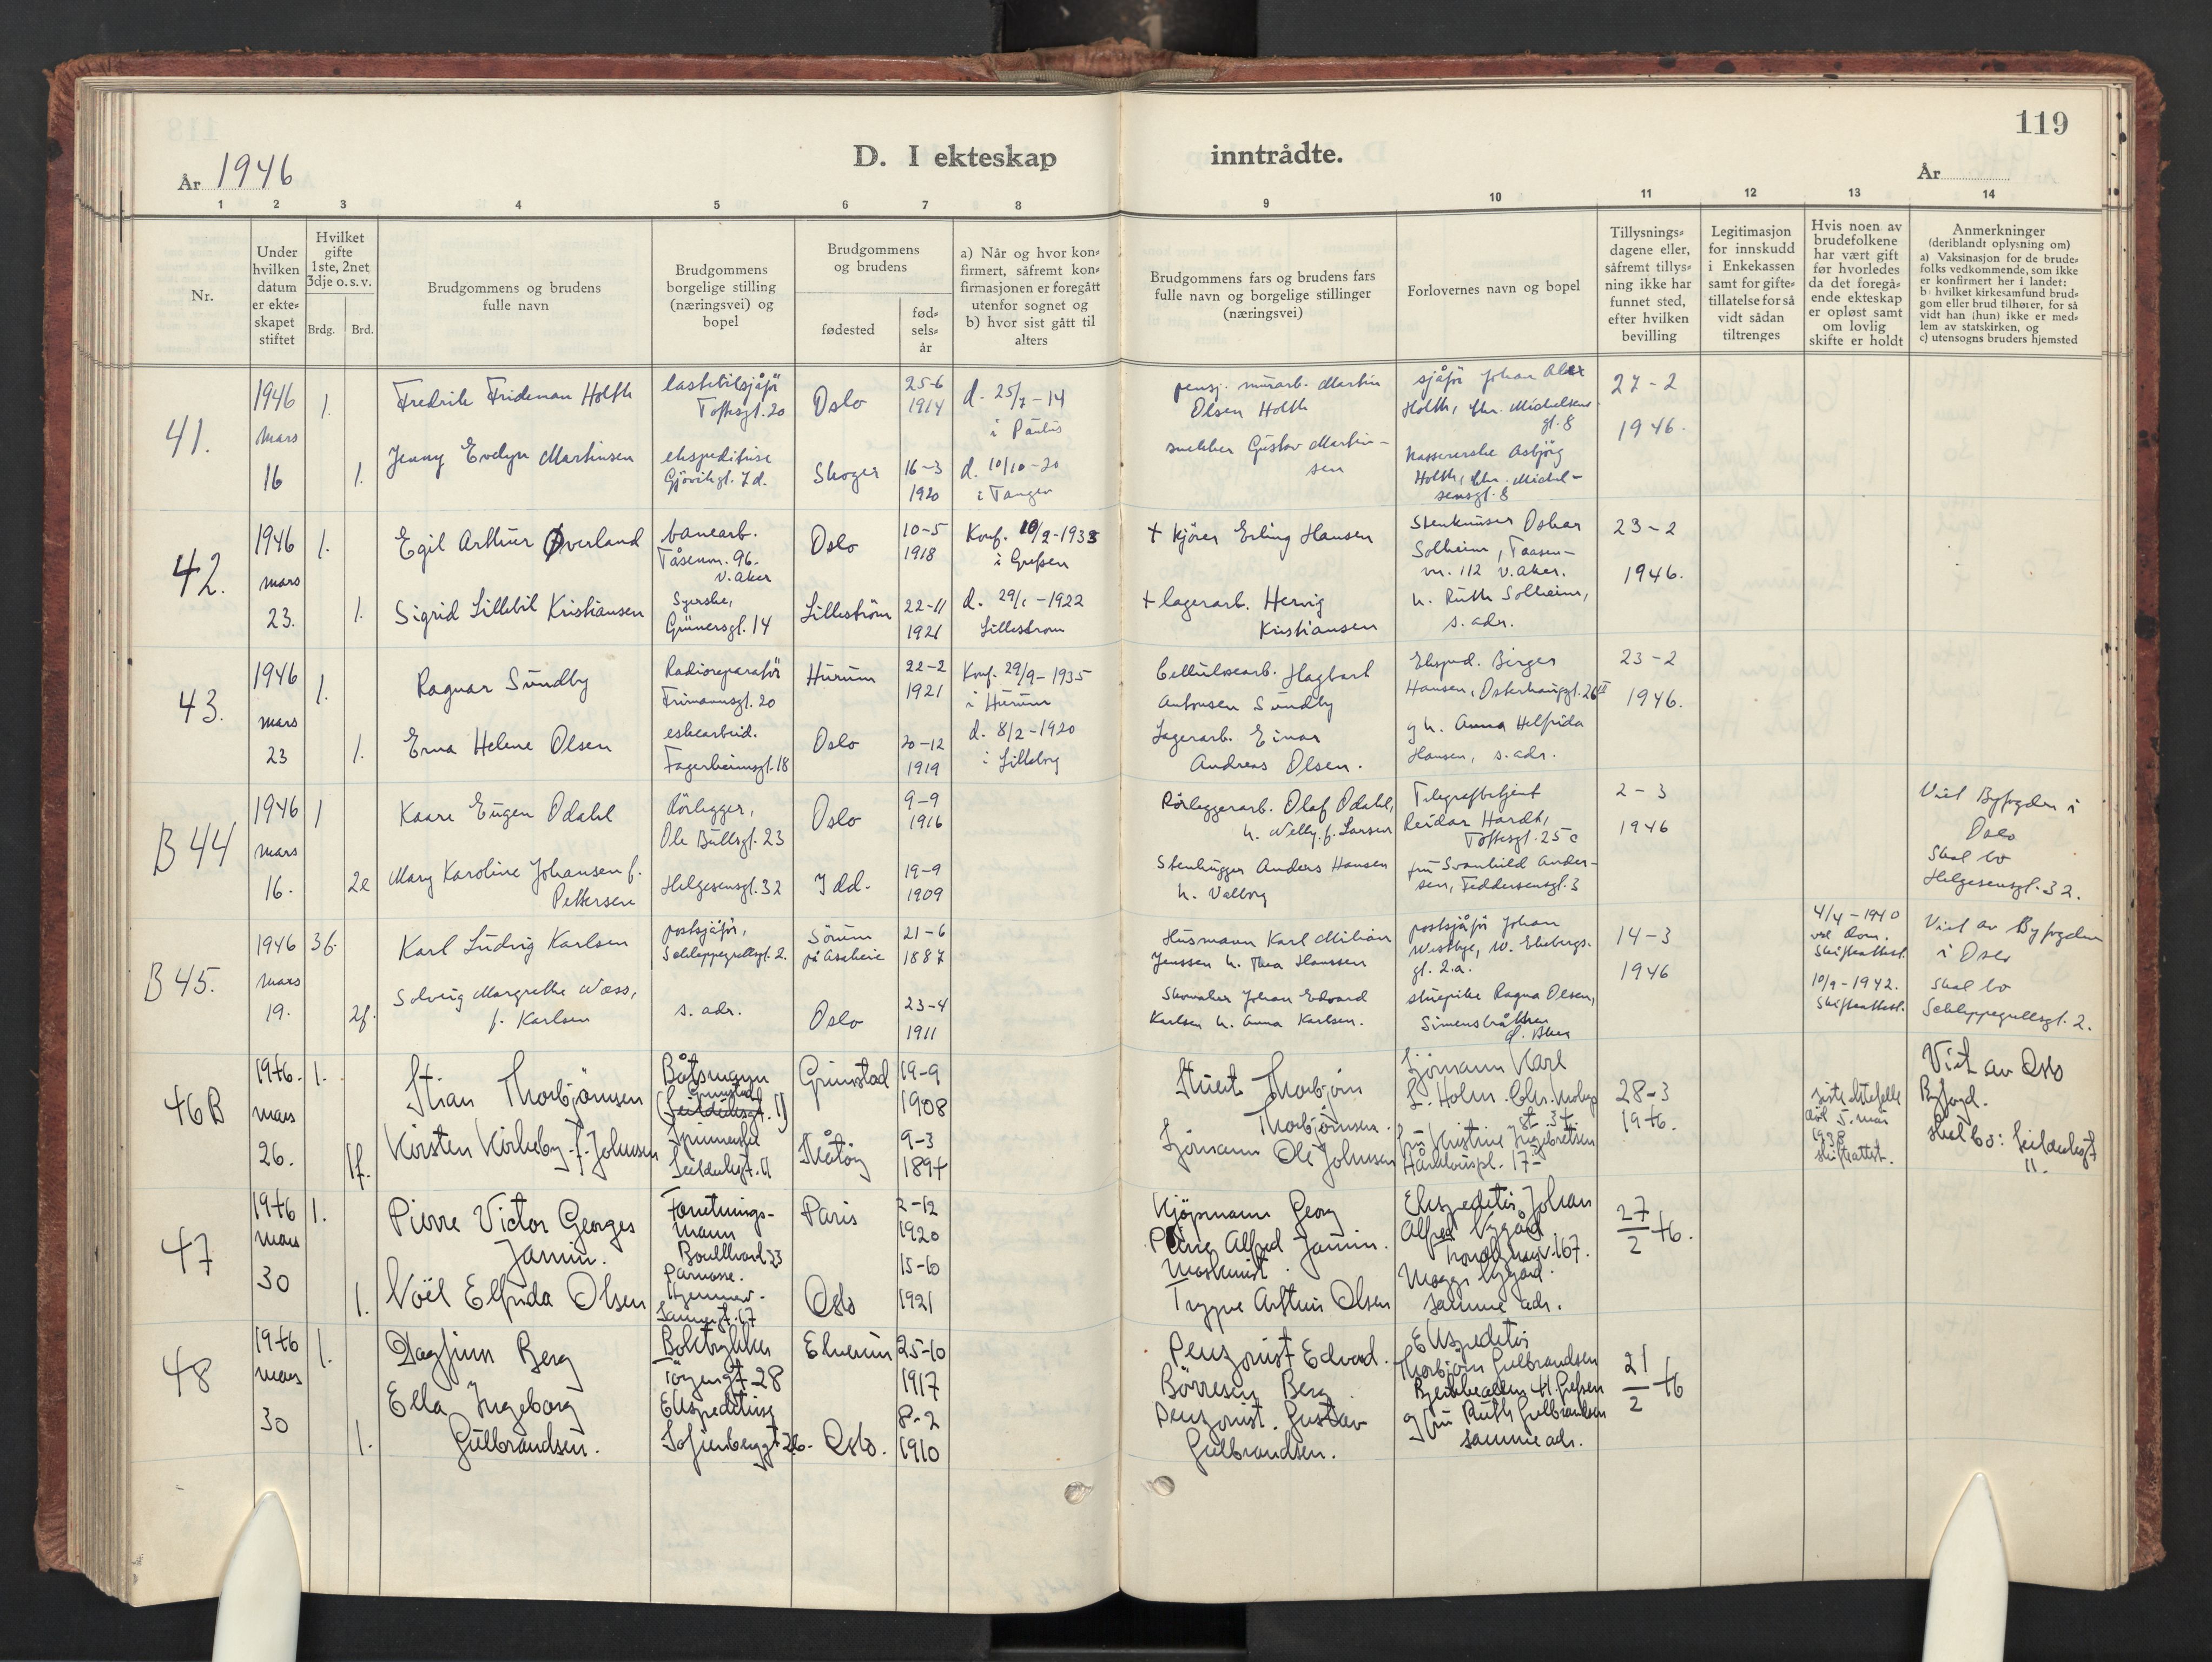 119
D. I ekteskap inntrådte.
År 1946
År
1 2 3 4 5 6 7 8 9 10 11 12 13 14
Nr.
Under hvilken datum er ekteskapet stiftet
Hvilket gifte 1ste, 2net 3dje o. s. v.
Brdg. Brd.
Brudgommens og brudens fulle navn
Brudgommens borgelige stilling (næringsvei) og bopel
Brudgommens og brudens
fødested
fød-sels-år
a) Når og hvor konfirmert, såfremt konfirmasjonen er foregått utenfor sognet og b) hvor sist gått til alters
Brudgommens fars og brudens fars fulle navn og borgelige stillinger (næringsvei)
Forlovernes navn og bopel
Tillysningsdagene eller, såfremt tillysning ikke har funnet sted, efter hvilken bevilling
Legitimasjon for innskudd i Enkekassen samt for giftetillatelse for så vidt sådan tiltrenges
Hvis noen av brudefolkene har vært gift før hvorledes da det foregående ekteskap er opløst samt om lovlig skifte er holdt
Anmerkninger (deriblandt oplysning om) a) Vaksinasjon for de brudefolks vedkommende, som ikke er konfirmert her i landet: b) hvilket kirkesamfund brudgom eller brud tilhører, for så vidt han (hun) ikke er medlem av statskirken, og c) utensogns bruders hjemsted
41.
1946 mars 16
1.
1.
Fredrik Frideman Holth
lastebilsjåfør
Toftesgt. 20
Oslo
25-6
1914
d. 25/7-14
i Paulus
pensj. murarb. Martin
Olsen Holth
sjåfør Johan Alex
Holth, Chr. Michelsens
gt. 8
27-2
1946.
Jenny Evelyn Martinsen
ekspeditrise
Gjøvikgt. 7 d.
Skoger
16-3
1920
d. 10/10-20
i Tangen
snekker Gustav Martin-
sen
kassererske Asbjörg
Holth, Chr. Michel-
sensgt. 8
42.
1946 mars 23.
1.
1.
Egil Arthur Øverland
banearb.
Tåsenvn. 96.
V. Aker
Oslo
10-5
1918
Konf. 10/2-1933
i Grefsen
+ kjører Erling Hansen
Stenknuser Oskar
Solheim, Taasen-
vn. 112 V. Aker.
23-2
1946.
Sigrid Lillebil Kristiansen
Syerske,
Grünersgt. 14
Lilleström
22-11
1921
d. 29/1-1922
Lillestrom
+ lagerarb. Hervig
Kristiansen
h. Ruth Solheim,
s. adr.
43.
1946 mars 23
1.
1.
Ragnar Sundby
Radioreparatör
Frimannsgt. 20
Hurum
22-2
1921
Konf. 29/9-1935
i Hurum
Cellulosearb. Hagbart
Antonsen Sundby
Eksped. Birger
Hansen, Osterhausgt. 26 III
23-2
1946.
Erna Helene Olsen
eskearbeid.
Fagerheimsgt. 18
Oslo
20-12
1919
d. 8/2-1920
i Lilleborg
Lagerarb. Einar
Andreas Olsen.
g h. Anna Helfrida
Hansen, s. adr.
B 44
1946 mars 16.
1
2e
Kaare Eugen Ödahl
Rörlegger,
Ole Bullsgt. 23
Oslo
9-9
1916
Rörleggerarb. Olaf Ödahl,
h. Welly f. Larsen
Telegrafbetjent
Reidar Hardt,
Toftesgt. 25 c
2-3
1946
Viet Byfogden i
Oslo
Skal bo
Helgesensgt. 32.
Mary Karoline Johansen f.
Pettersen
Helgesensgt. 32
Idd.
19-9
1909
Stenhugger Anders Hansen
h. Valborg
fru Svanhild Ander-
sen, Feddersensgt. 3
B 45.
1946 mars 19.
3f.
2f.
Karl Ludvig Karlsen
postsjåfør,
Schleppegrellsgt. 2.
Sörum
på Asakeie
21-6
1887
Husmann Karl Milian
Jenssen h. Thea Hanssen
postsjåfør Johan
Westbye, W. Ekebergs-
gt. 2.a.
14-3
1946
4/4-1940
ved dom.
Skifteattest.
Viet av Byfogden
i Oslo
Skal bo
Schleppegrellsgt. 2.
Solveig Margrethe Wæss,
f. Karlsen
s. adr.
Oslo
23-4
1911
Skomaker Johan Edvard
Karlsen h. Anna Karlsen.
stuepike Ragna Olsen,
Simensbråtten
10/9-1942.
Skifteattest.
46B
1946. mars 26.
1.
1f.
Stian Thorbjörnsen
Båtsmann
Grimstad
(Seilduksgt. 11)
Grimstad
19-9
1908
Stuert Thorbjörn
Thorbjörnsen.
Sjömann Karl
L. Holm. Chr. Krohgs
gt. 34.
28-3
1946.
siste ektefelle
död 5. mai
1938
skifteattest.
Viet av Oslo
Byfogd.
Skal bo: Seilduksgt
11.
Kirsten Kirkeby f. Johnsen
Spinnerske
Seilduksgt. 11
Skåtöy
9-3
1894
Sjömann Ole Johnsen
Fru Kristine Ingebretsen
Hårklouspl. 17-
47
1946 mars 30
1.
1.
Pierre Victor Georges
Jamin.
Forretnings-
mann
Boullvard 23
Parnasse.
Paris
2-12
1920
Kjöpmann Georg
Pierre Alfred Jamin.
Ekspeditör Johan
Alfred Nygård
Trondhjemsv. 167.
27/2 46.
Noël Elfrida Olsen
Hjemmev.
Sannergt. 17
Oslo
15-10
1921
Maskinist
Trygve Arthur Olsen
Maggi Nygård.
samme adr.
48
1946 mars 30
1.
1.
Dagfinn Berg
Boktrykker
Töyengt 28
Elverum
25-10
1917
Pensjonist Edvard
Börresen Berg.
Ekspeditör
Thorbjörn Gulbrandsen
Bjerkealleen 41. Grefsen
21/2 46
Ella Ingeborg
Gulbrandsen.
Ekspeditrise
Sofienberggt 26.
Oslo.
8-2
1910
Pensjonist. Gustav
Gulbrandsen.
g fru Ruth Gulbrandsen
samme adr.